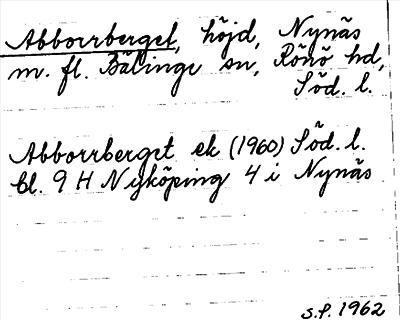 Abborrberget, höjd, Nynäs
m. fl. Bälinge sn, Rönö hd,
Söd. l.
Abborrberget ek (1960) Söd. l.
bl. 9 H Nyköping 4 i Nynäs
S.P. 1962